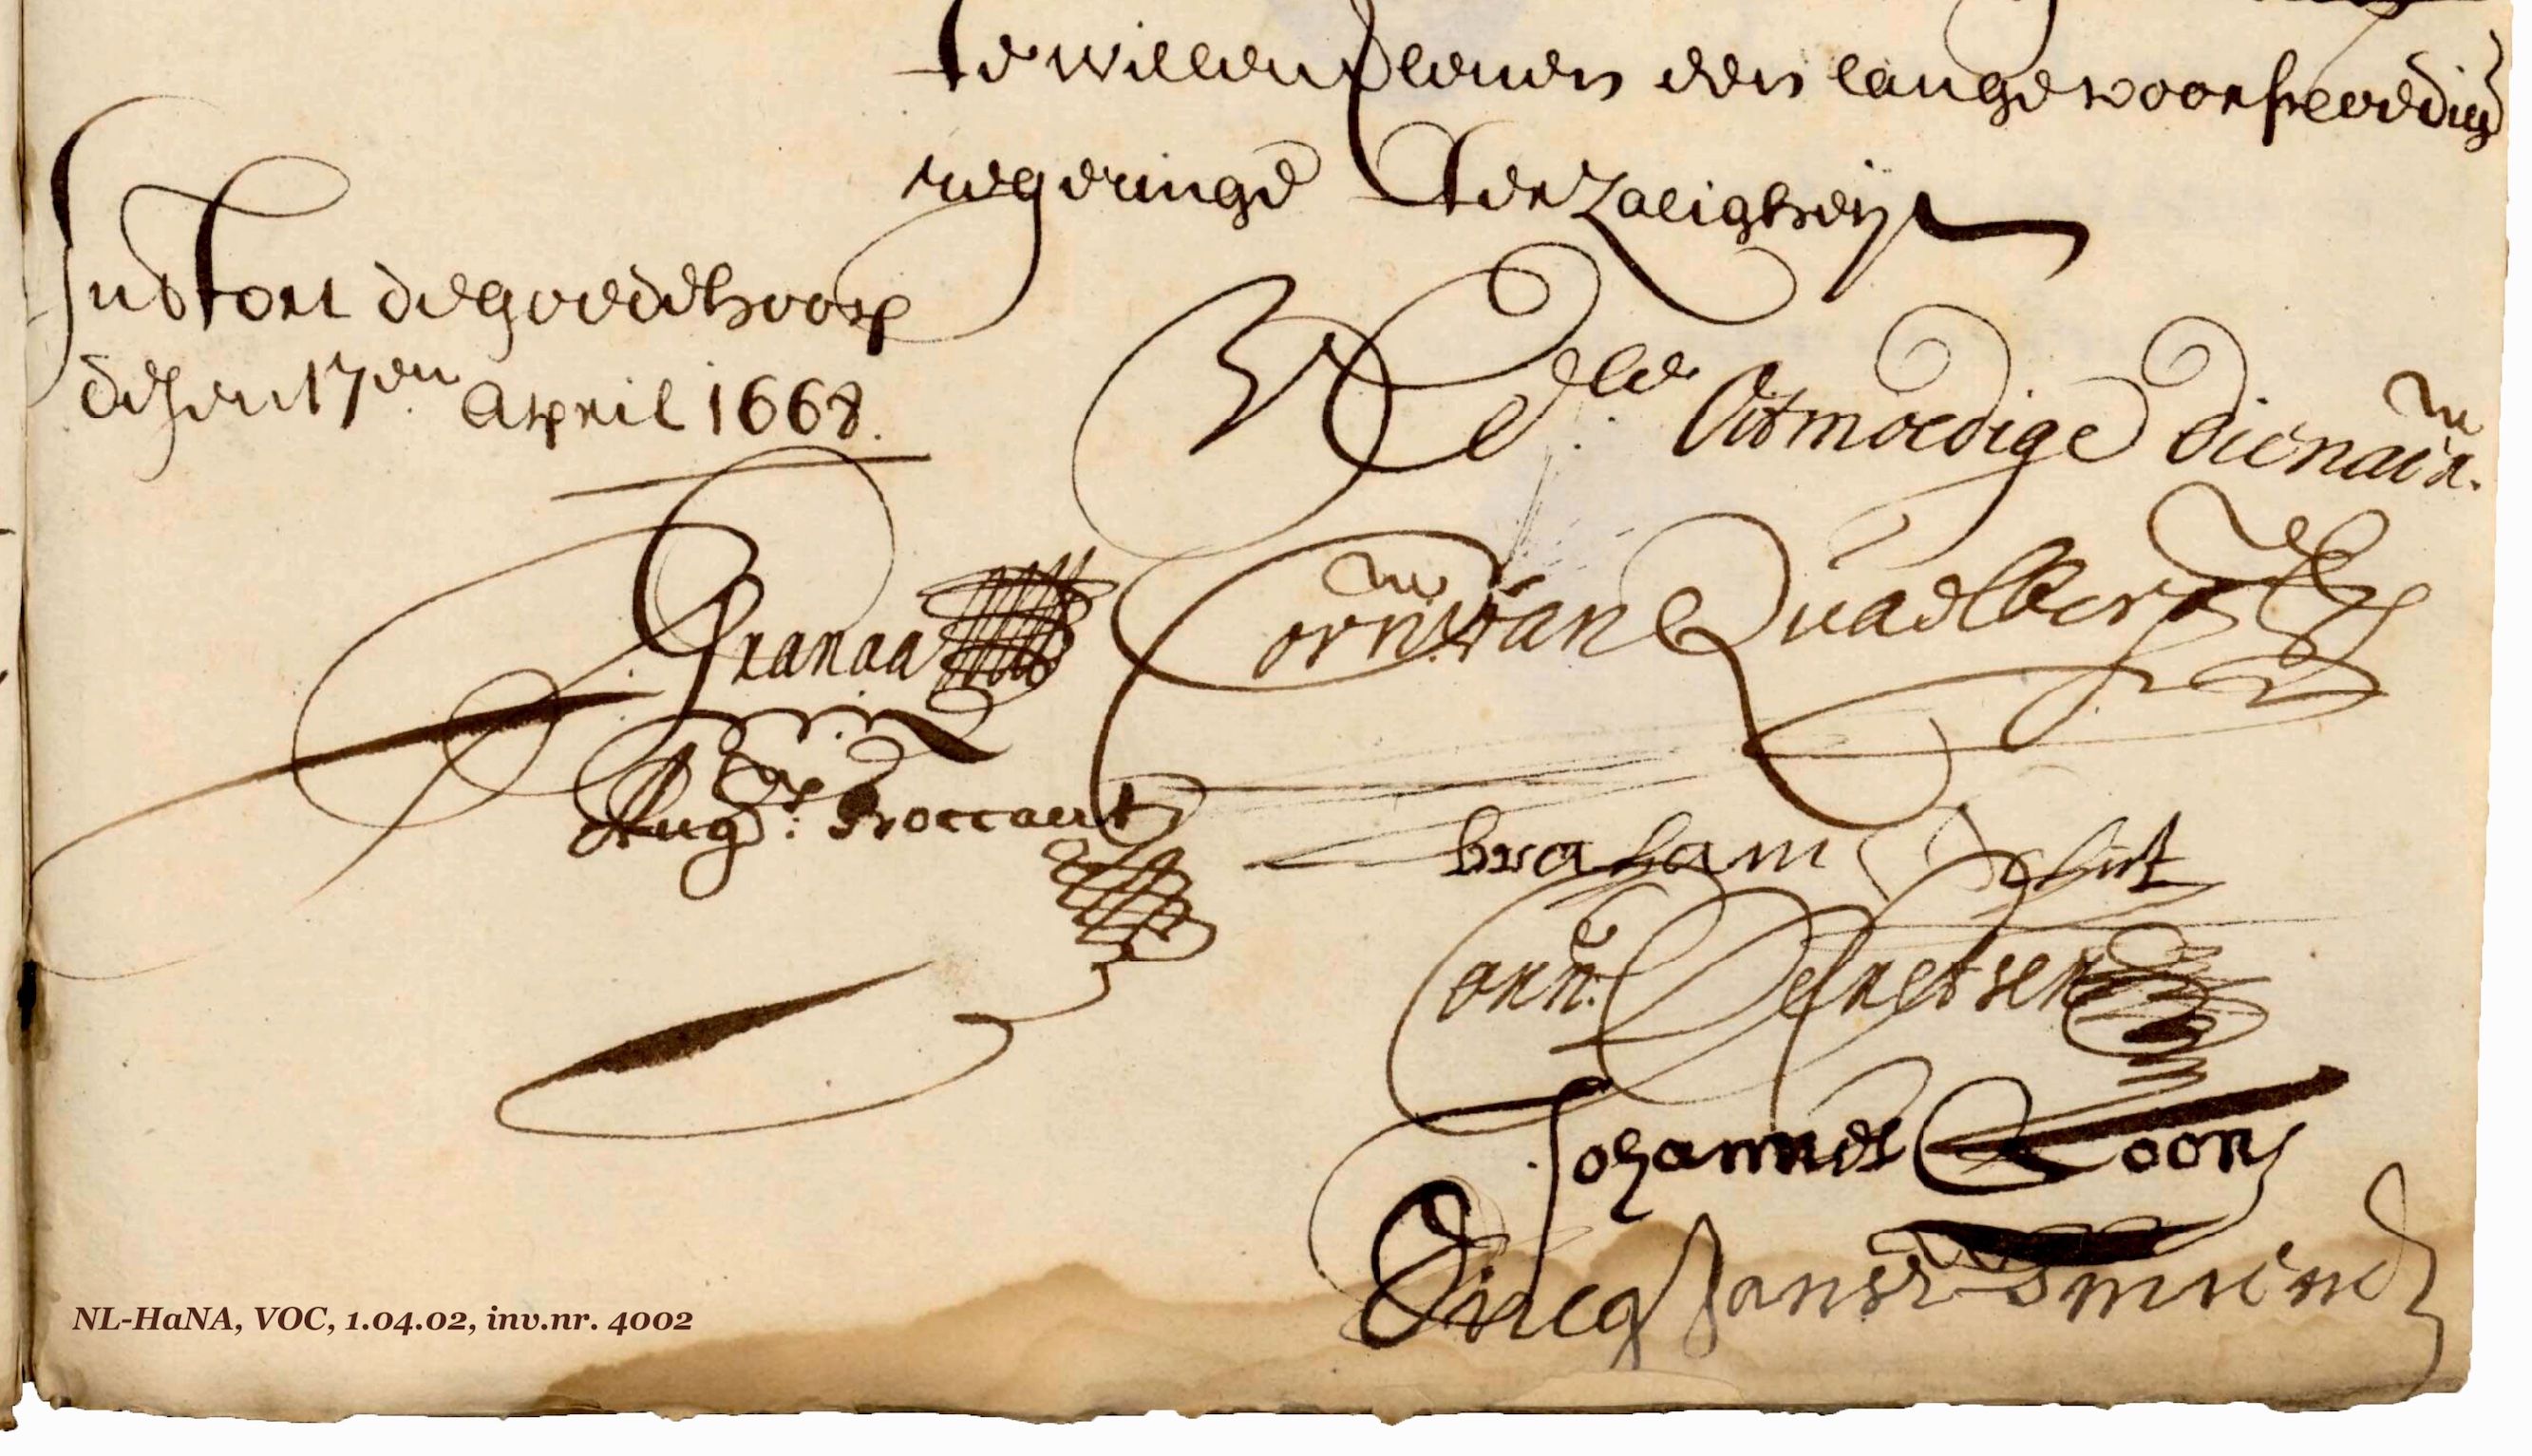 te willen leenen een lange voorspoedig
regeringe Ter Zaligheijt
In't Fort de goede hoop
desen 17en April 1668.
V Edle Oitmoedige Dienaren
Granaa
Corn: van Quaelberg
Aug:s Broccaert
Abraham Schut
Corn: De Cretser
Johannes Coon
Dircq Jansz Smient
NL-HaNA, VOC, 1.04.02, inv.nr. 4002